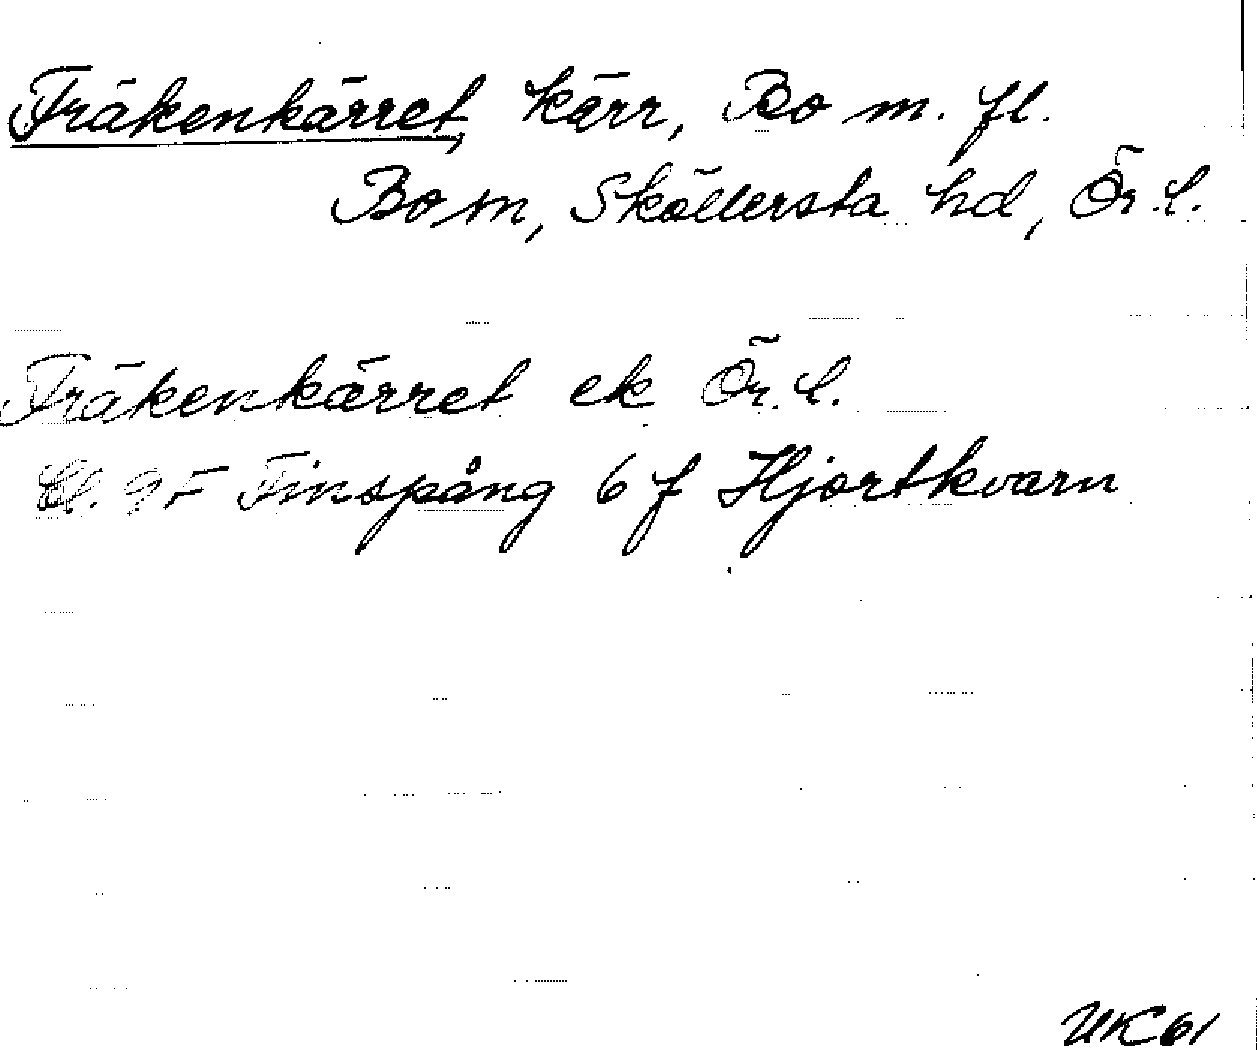 Fräkenkärret, kärr, Bo m. fl.
Bo sn, Sköllersta hd, Ör. l.
Fräkenkärret ek Ör. l.
Bl. 9F Finspång 6 f Hjortkvarn
UK 61